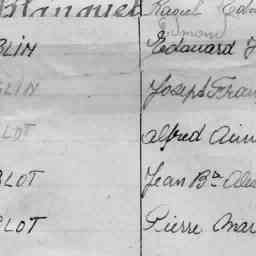 Blanquet Raoul Edm
Edmond
BLIN Edouard J
BLIN Joseph Fran
BLOT Alfred Aim
BLOT Jean Bte Alex
BLOT Pierre Mar